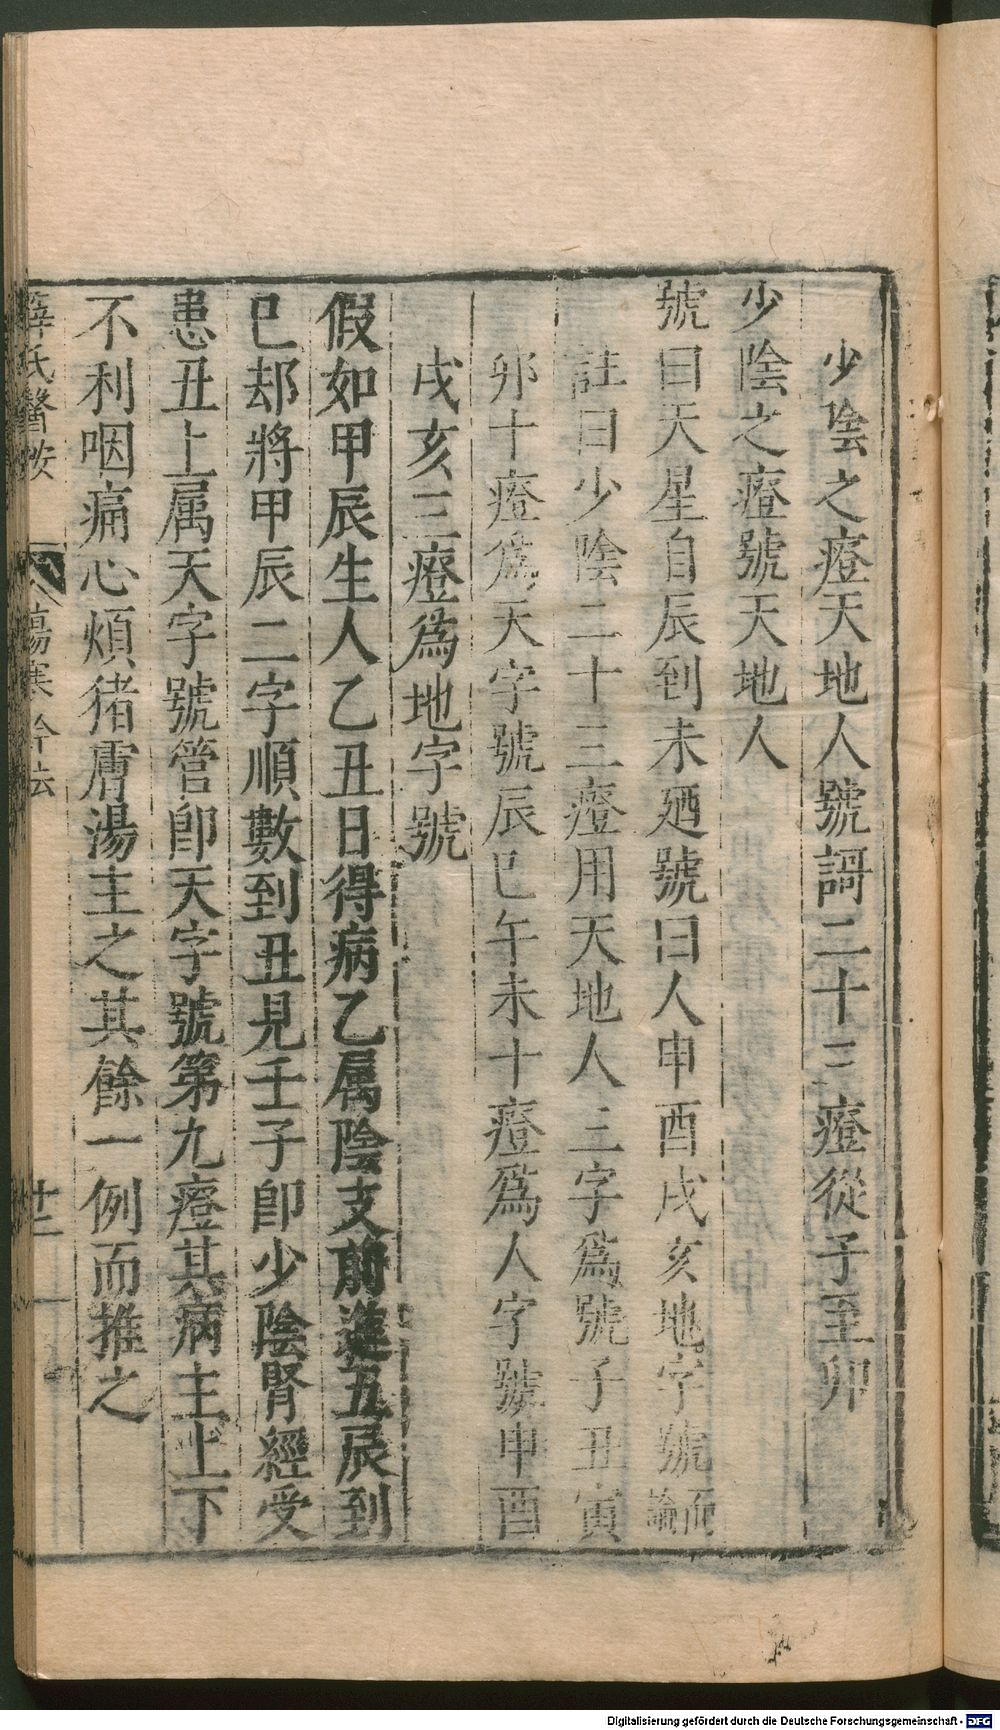 少陰之證天地人號謌二十三證從子至卯
少陰之證號天地人
號曰天星自辰到未廼號曰人申酉戌亥地字號而論
註曰少陰二十三證用天地人三字爲號子丑寅
卯十證爲天字號辰巳午未十證爲人字號申酉
戌亥三證爲地字號
假如甲辰生人乙丑日得病乙属陰支前進五辰到
巳却將甲辰二字順數到丑見壬子卽少陰腎經受
患丑上属天字號管卽天字號第九證其病主上下
不利咽痛心煩猪膚湯主之其餘一例而推之
薛氏醫按 傷寒鈐法 廿二
Digitalisierung gefördert durch die Deutsche Forschungsgemeinschaft - DFG